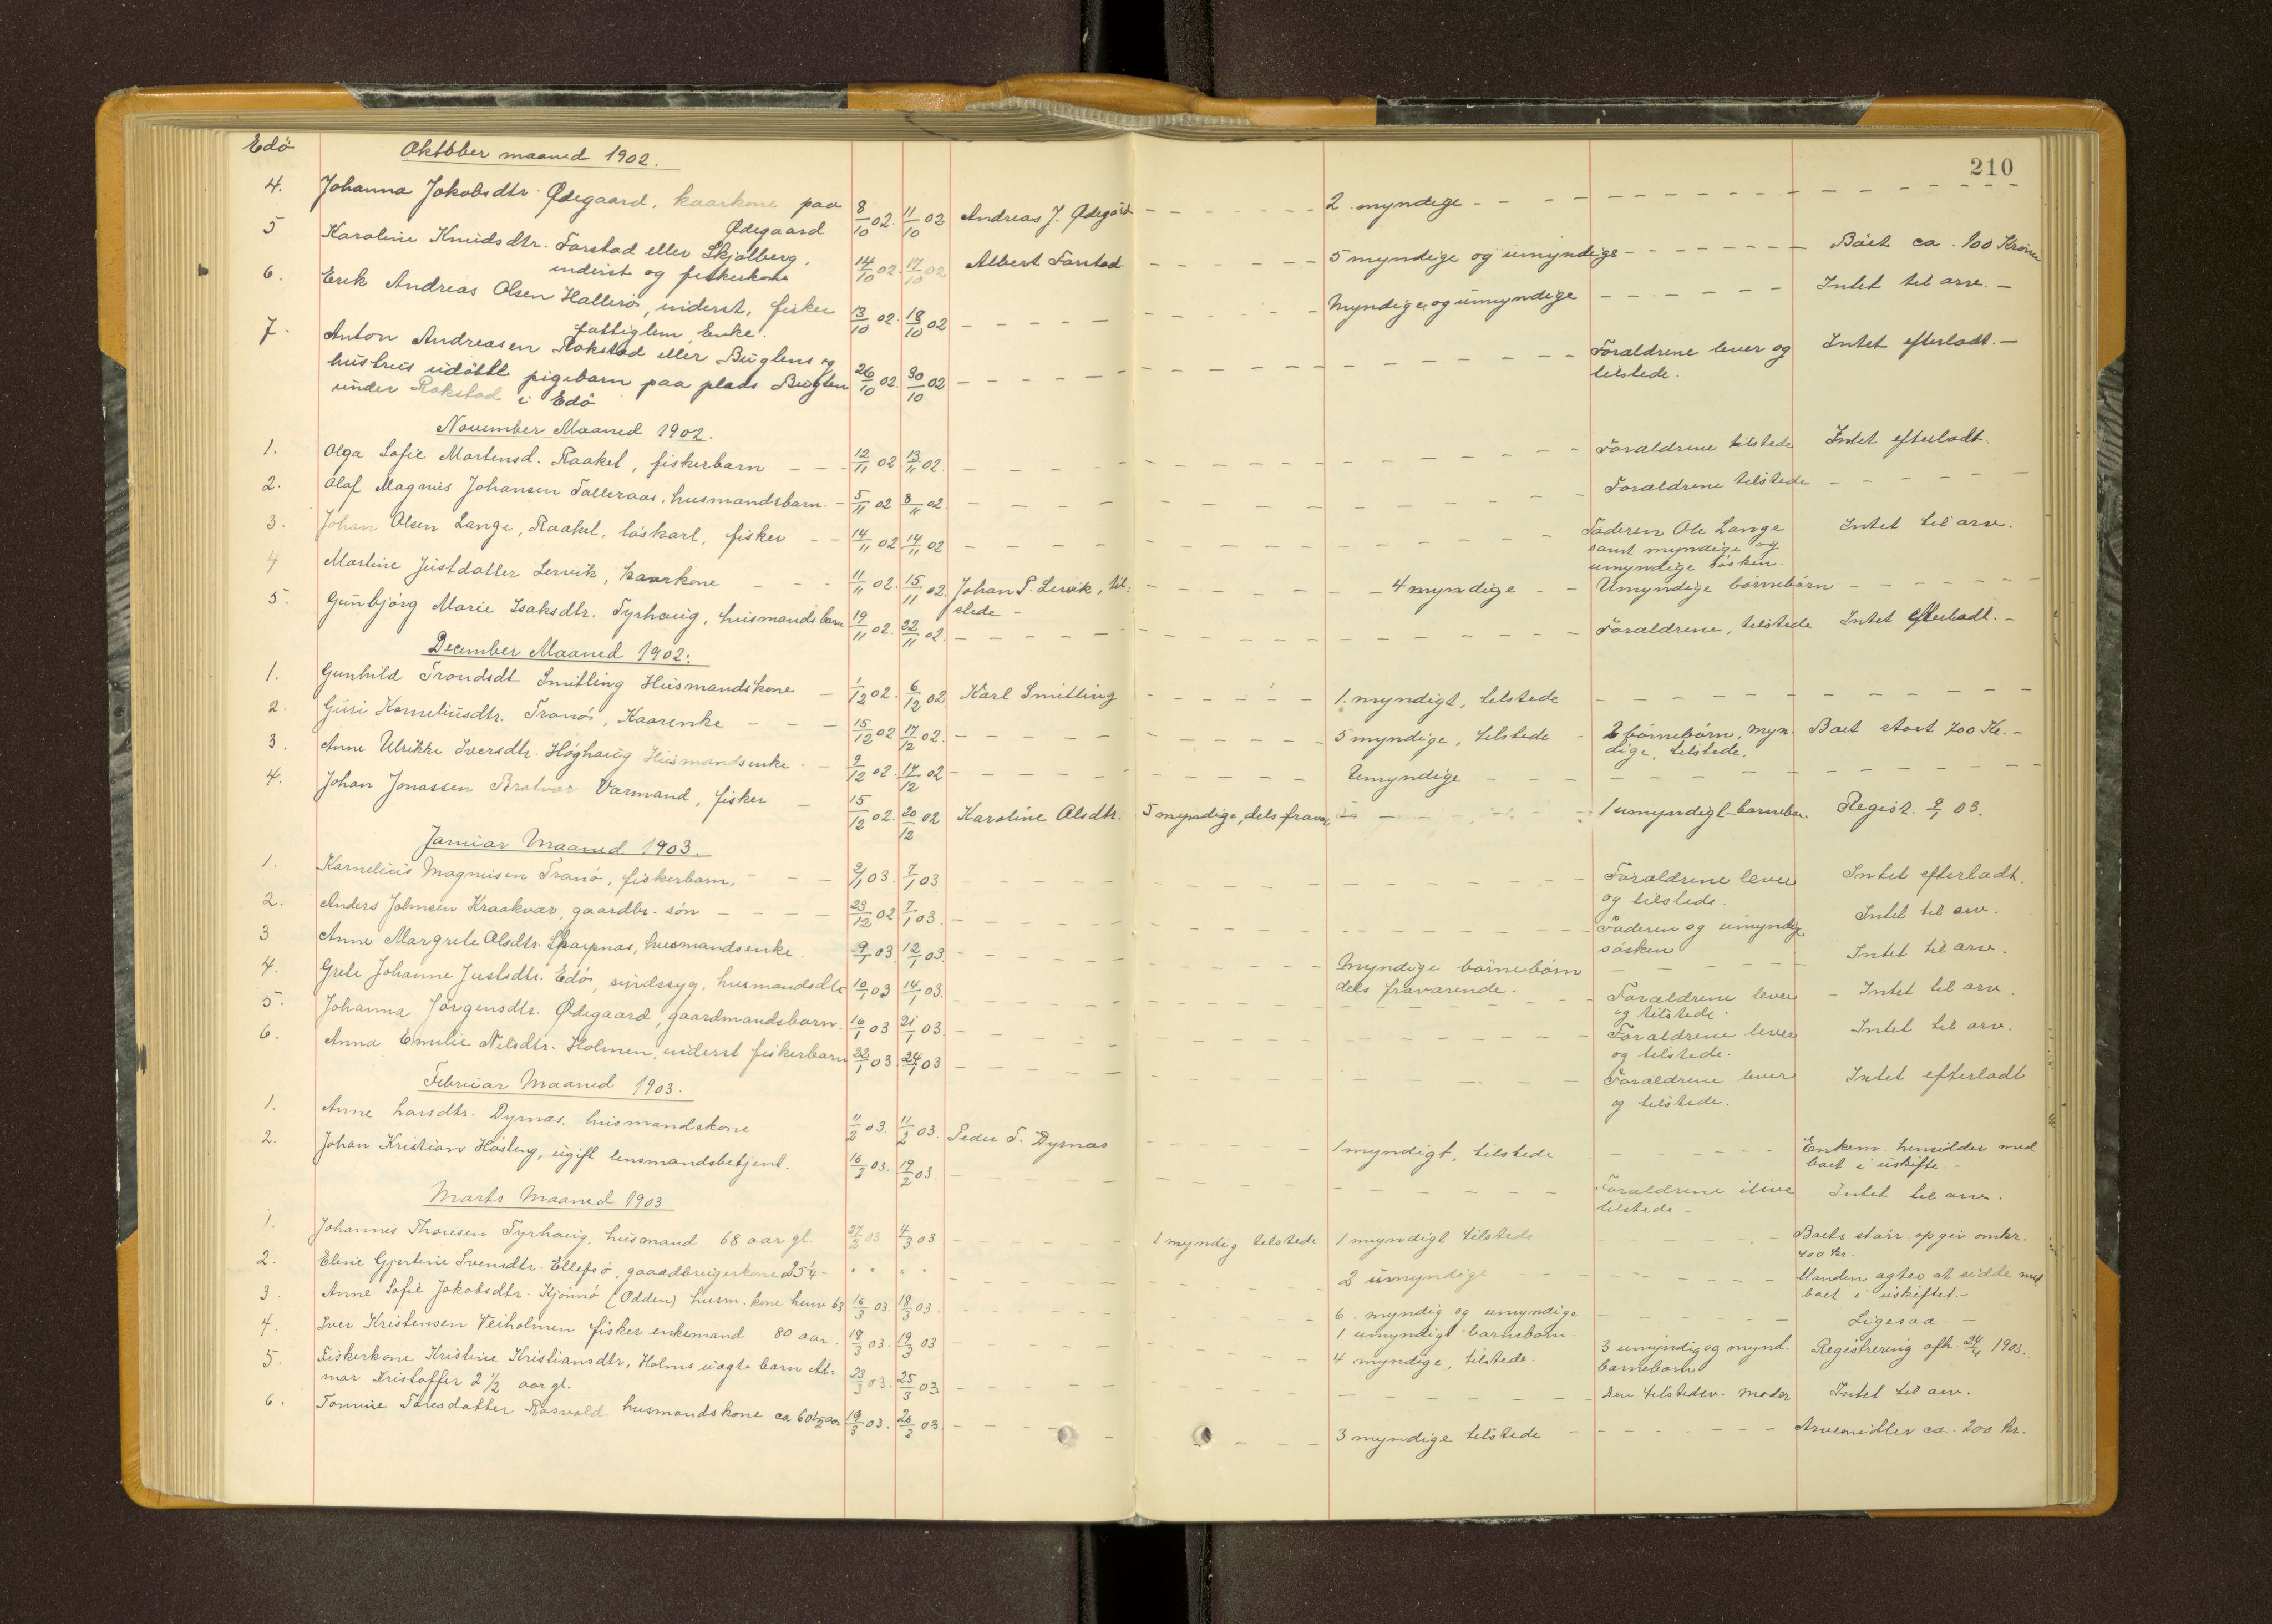 Edö Oktober maaned 1902. 210
4. Johanna Jakobsdtr. Ødegaard, kaarkone paa
Ødegaard 8/10 02. 11/10 02 Andreas J. Ødegård 2 myndige
5 Karoline Knudsdtr. Forstad eller Skjølberg.
inderst og fiskerkone 14/10 02. 17/10 02 Albert Forstad 5 myndige og umyndige Böet ca. 100 Kroner
6. Erik Andreas Olsen Hallerö, inderst, fisker
fattiglem, Enke. 13/10 02. 18/10 02 Myndige og umyndige Intet til arv.
7. Anton Andreasen Rokstad eller Buglens og
hustrus udöbtl pigebarn paa plads Buglen 26/10 02. 30/10 02 Foraldrene lever og Intet efterladt.
under Rokstad i Edö tilstede.
November Maaned 1902.
1. Olga Sofie Martensd. Raaket, fiskerbarn 12/11 02 13/11 02. Foraldrene tilstede Intet efterladt.
2. Olaf Magnus Johansen Talleraas, husmandsbarn. 5/11 02 8/11 02. Foraldrene tilstede
3. Johan Olsen Lange, Raaket, löskarl, fisker 14/11 02 14/11 02 Faderen Ole Lange Intet til arv.
samt myndige og
umyndige sösken.
4 Martine Justdatter Lervik, kaarkone 11/11 02. 15/11 02. Johan P. Lervik, til: 4 myndige Umyndige börnebörn
stede
5. Gunbjörg Marie Isaksdtr. Tyrhaug, husmandsbarn 19/11 02. 22/11 02. Foraldrene, tilstede Intet efterladt.
December Maaned 1902.
1. Gunhild Trondsdt Smitling Husmandskone 1/12 02. 6/12 02 Karl Smitling 1. myndigt, tilstede
2. Guri Korneliusdtr. Tranö, Kaarenke 15/12 02 17/12 02. 5 myndige, tilstede 2 börnebörn, myn. Boet stort 700 Kr.
dige, tilstede.
3. Anne Ulrikke Iversdtr. Höghaug Husmandsenke. 9/12 02. 17/12 02 Umyndige
4. Johan Jonassen Bratvar Varmand, fisker 15/12 02. 20/12 02 Karoline Olsdtr. 5 myndige, dels frava 1 umyndigt barnebar. Regist. 9/1 03.
Januar Maaned 1903.
1. Kornelius Magnusen Tranö, fiskerbarn, 2/1 03. 7/1 03 Foraldrene lever Intet efterladt.
og tilstede.
2. Anders Johnsen Kraakvar, gaardbr. sön 23/12 02 7/1 03. Faderen og umyndig Intet til arv.
sösken
3 Anne Margrete Olsdtr. Skarpnas, husmandsenke. 9/1 03. 12/1 03. Myndige börnebörn Intet til arv.
dels fravarende.
4. Grete Johanne Justsdtr. Edö, sindssyg, husmandsdtr 10/1 03 14/1 03. Foraldrene lever Intet til arv.
og tilstede.
5. Johanna Jörgensdtr. Ødegaard, gaardmandsbarn. 16/1 03 21/1 03 Foraldrene lever Intet til arv.
og tilstede.
6. Anna Emilie Nilsdtr. Holmen, inderst fiskerbarn 22/1 03 24/1 03 Foraldrene lever Intet efterladt
og tilstede.
Februar Maaned 1903.
1. Anne Larsdtr. Dyrnas, husmandskone 11/2 03. 11/2 03. Peder T. Dyrnas 1 myndigt, tilstede Enkem. hensidder med
boet i uskifte.
2. Johan Kristian Hösling, ugift lensmandsbetjent. 16/2 03. 19/2 03. Foraldrene ilive Intet til arv.
tilstede
Marts Maaned 1903
1. Johannes Thoresen Tyrhaug, husmand 68 aar gl. 27/2 03 4/3 03 1 myndig tilstede 1 myndigt tilstede Boets störr. opgiv omkr.
400 kr.
2. Eline Gjertine Svensdtr. Ellefsö, gaardbrugerkone 25 1/4 " " " " 2 umyndige Manden agter at sidde med
boet i uskiftet.
3. Anne Sofie Jakobsdtr. Kjönnö (Odden) husm. kone henv 63 16/3 03. 18/3 03. 6. myndig og umyndige Ligesaa.
1 umyndigt barnebarn.
4. Iver Kristensen Veiholmen fisker enkemand 80 aar. 18/3 03. 19/3 03 4 myndige, tilstede. 3 umyndig og mynd. Registrering afh. 24/4 1903.
barnebarn
5. Fiskerkone Kristine Kristiansdtr, Holms uagte barn Al=
mar Kristoffer 2 1/2 aar gl. 23/3 03. 25/3 03 den tilstedev. moder Intet til arv.
6. Tomine Toresdatter Rosvold husmandskone ca 60 1/2 aar 19/3 03. 26/3 03. 3 myndige tilstede Arvemidler ca. 200 kr.